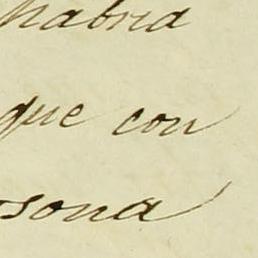 habria
que con
sona